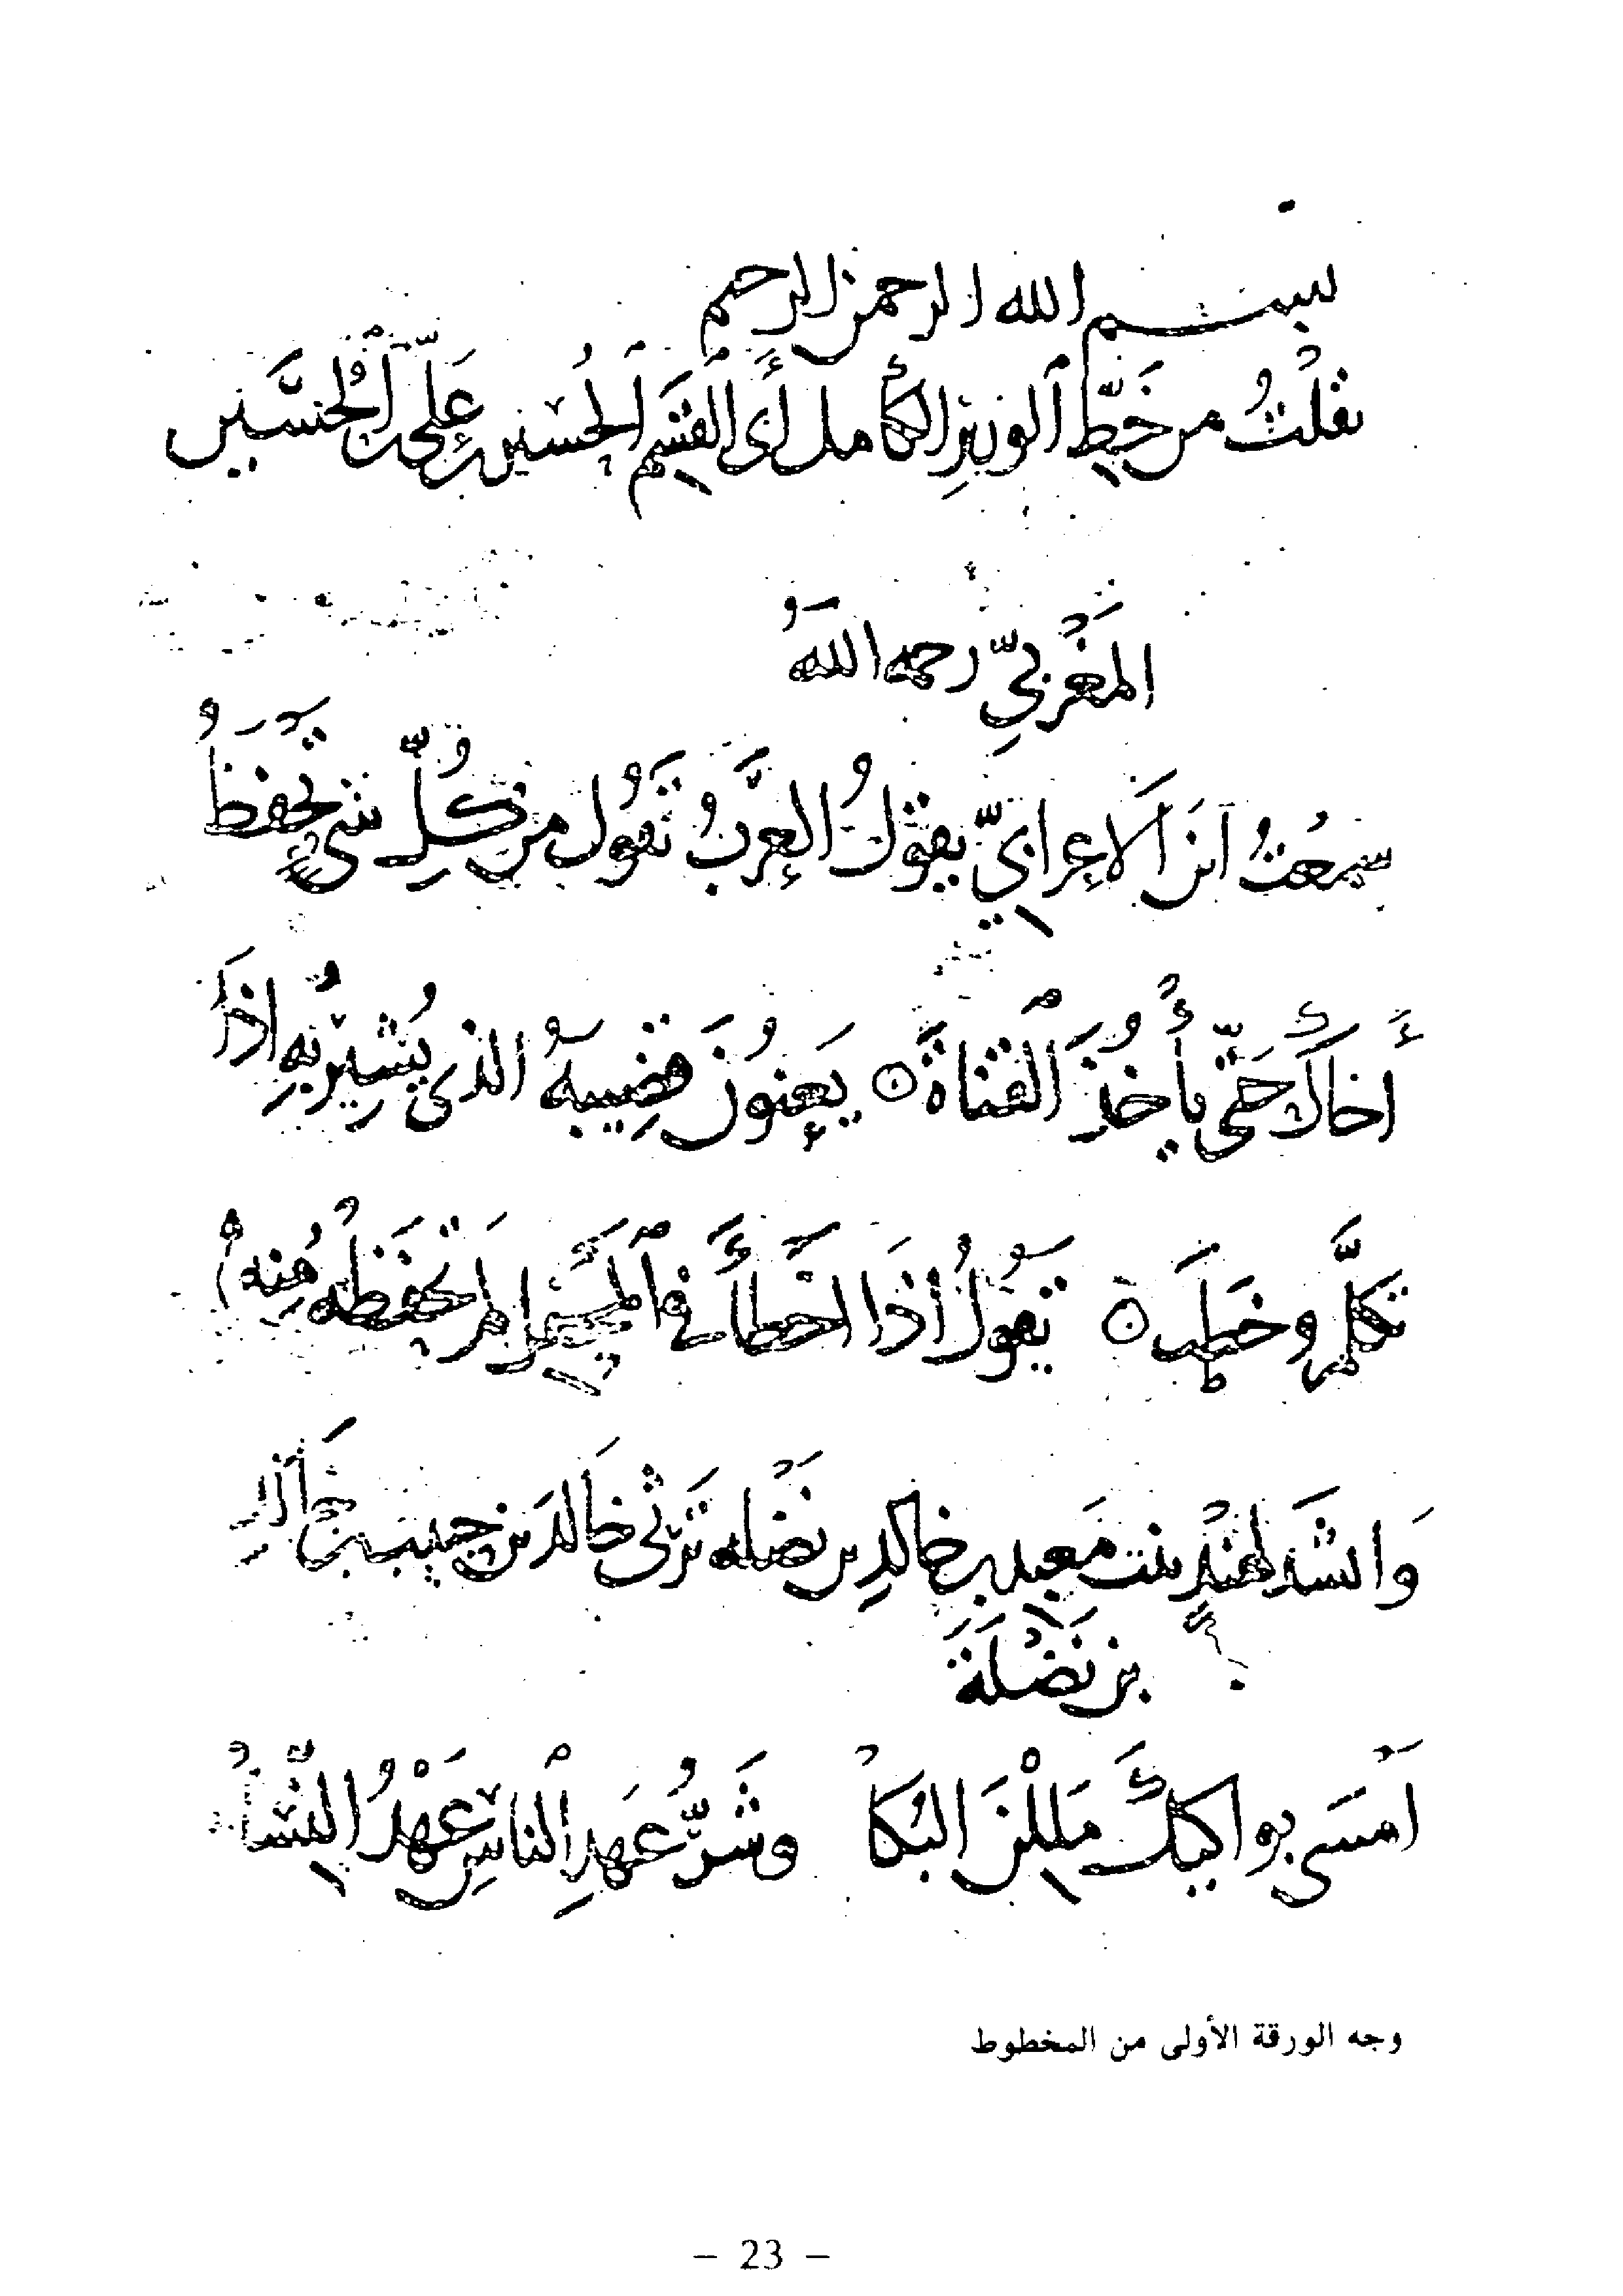 بسم الله الرحمن الرحيم
نقلتُ من خَطِّ الوزيرِ الكامل أبي القسم الحُسين بن علي بن الحسين
المَغْربيّ رحمه اللهُ
سمعتُ ابنَ الأعرابيّ يقولُ العربُ تقُول من كُلِّ شيء تحفَظُ
أخاكَ حتّى يأخُذَ القَناةَ ۞ يَعنُونَ قضيبَهُ الذي يُشيرُ بهِ إذا
تكلَّم وخَطب ۞ تقولُ إذَا أخطأ في لم تحفَظْه مِنه
وانشدَ لهندٍ بنت مَعبد بن خالدِ بن نَضْله تَرثي خَالدَ بن حبيب بن خَالد
بن نَضْلَةَ
أمْسَى بواكيكَ مَلِلْنَ البُكَا وشَرُّ عَهدِ الناسِ عَهْدُ النِّسَا
وجه الورقة الأولى من المخطوط
– 23 –